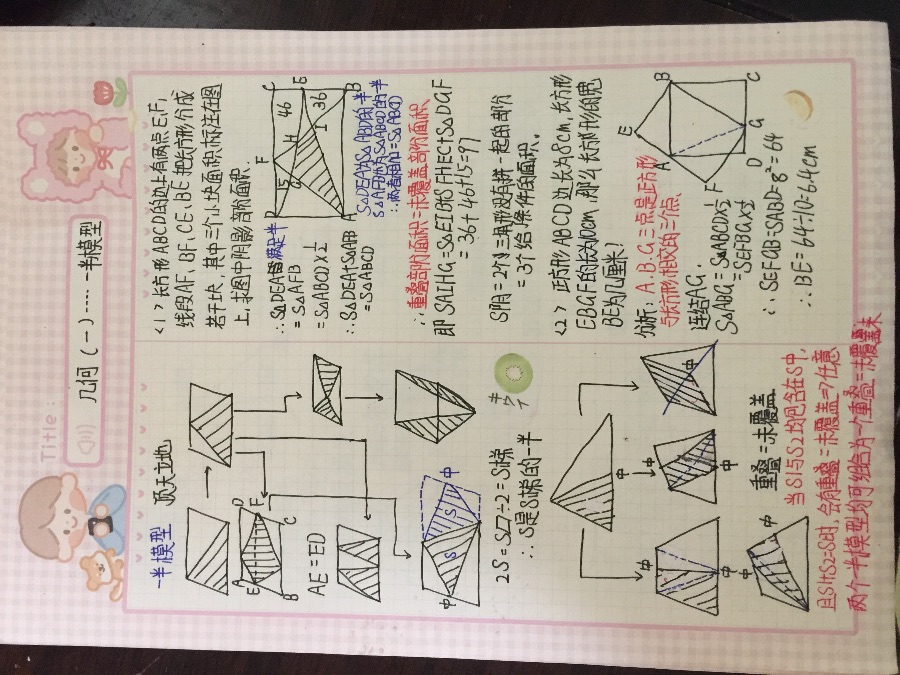 Title:
几何（一）----一半模型
一半模型 顶天立地
A
D
E
F
B
C
AE=ED
S
S
中
中
2S=S▱÷2=S梯
∴S是S梯的一半
中
中
中
中
中
中
重叠=未覆盖
当S1与S2均包含在S中,
且S1+S2=S时,会有重叠=未覆盖=>任意
两个一半模型均可组合为一个重叠=未覆盖
<1>长方形ABCD的边上有两点E、F,
线段AF、BF、CE、BE把长方形分成
若干块,其中三个小块面积标注在图
上,求图中阴影部分面积.
∴S△DEA
=S△AFB
=S▱ABCD×1/2
∴S△DEA+S△AFB
=S▱ABCD
D
F
C
15
46
E
G
H
36
I
A
B
S△DEA为S▱ABCD的一半
S△AFB为S▱ABCD的一半
∴两者相加=S▱ABCD
∵重叠部分面积=未覆盖部分面积,
即SAIHG=S△EIB+S△FHEC+S△DGF
=36+46+15=97
S阴=2个三角形没有拼一起的部分
=3个给条件的面积.
<2>正方形ABCD边长为8cm,长方形
EBGF的长为10cm,那么长方形的宽
BE为几厘米?
分析:A.B.G三点是正方形
与长方形相交的三个点.
连结AG.
S△ABG=S▱ABCD×1/2
=SEFBG×1/2
∴SEFGB=SABCD=8²=64
∴BE=64÷10=6.4cm
E
A
B
F
D
G
C